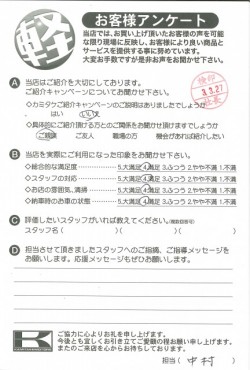 軽
お客様アンケート
当店では、お買い上げ頂いたお客様の声を可能
な限り現場に反映し、お客様により良い商品と
サービスを提供する事に努めています。
大変お手数ですが是非お声をお聞かせ下さい。
検印
3.3.27
店長
A 当店はご紹介を大切にしております。
ご紹介キャンペーンについてお聞かせ下さい。
◇カミタケご紹介キャンペーンのご説明はありましたでしょうか
はい いいえ
◇具体的にご紹介頂ける方とのご関係をお聞かせ頂けますでしょうか
ご親戚 ご友人 職場の方 機会があれば紹介したい
B 当店を実際にご利用になった印象をお聞かせ下さい。
◇総合的な満足度 5.大満足 4.満足 3.ふつう 2.やや不満 1.不満
◇スタッフの対応 5.大満足 4.満足 3.ふつう 2.やや不満 1.不満
◇お店の雰囲気、清掃 5.大満足 4.満足 3.ふつう 2.やや不満 1.不満
◇納車時のお車の状態 5.大満足 4.満足 3.ふつう 2.やや不満 1.不満
C 評価したいスタッフがいれば教えてください。(複数回答可)
スタッフ名 ( ) ( ) ( )
D 担当させて頂きましたスタッフへのご指摘、ご指導メッセージを
お願いします。応援メッセージもぜひお願いします。
K
ご協力に心よりお礼を申し上げます。
今後とも宜しくお引き立てご愛顧の程お願い申し上げます。
またのご来店を心からお待ちしております。
担当 ( 中村 )